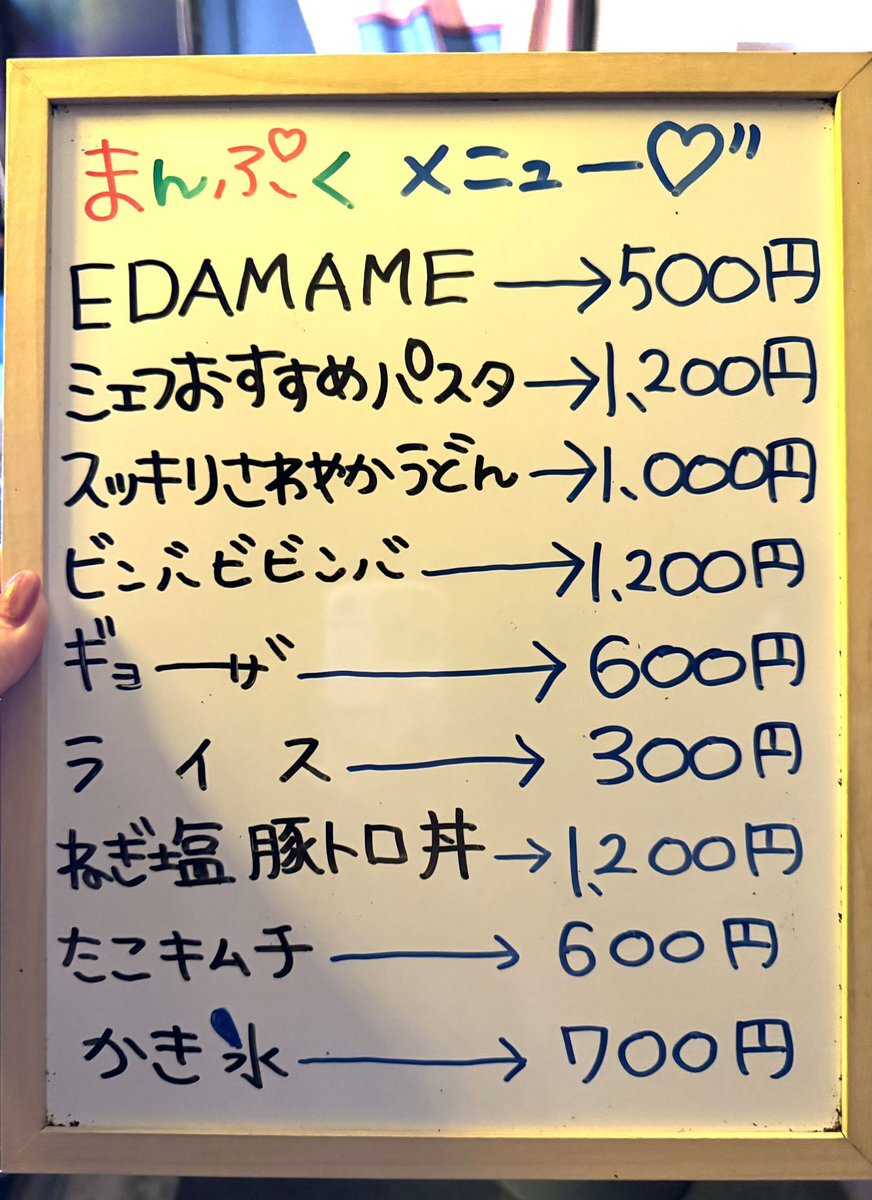 まんぷく メニュー♡"
EDAMAME→500円
シェフおすすめパスタ→1,200円
スッキリさわやかうどん→1,000円
ビンバビビンバ→1,200円
ギョーザ→600円
ライス→300円
ねぎ塩豚トロ丼→1,200円
たこキムチ→600円
かき氷→700円